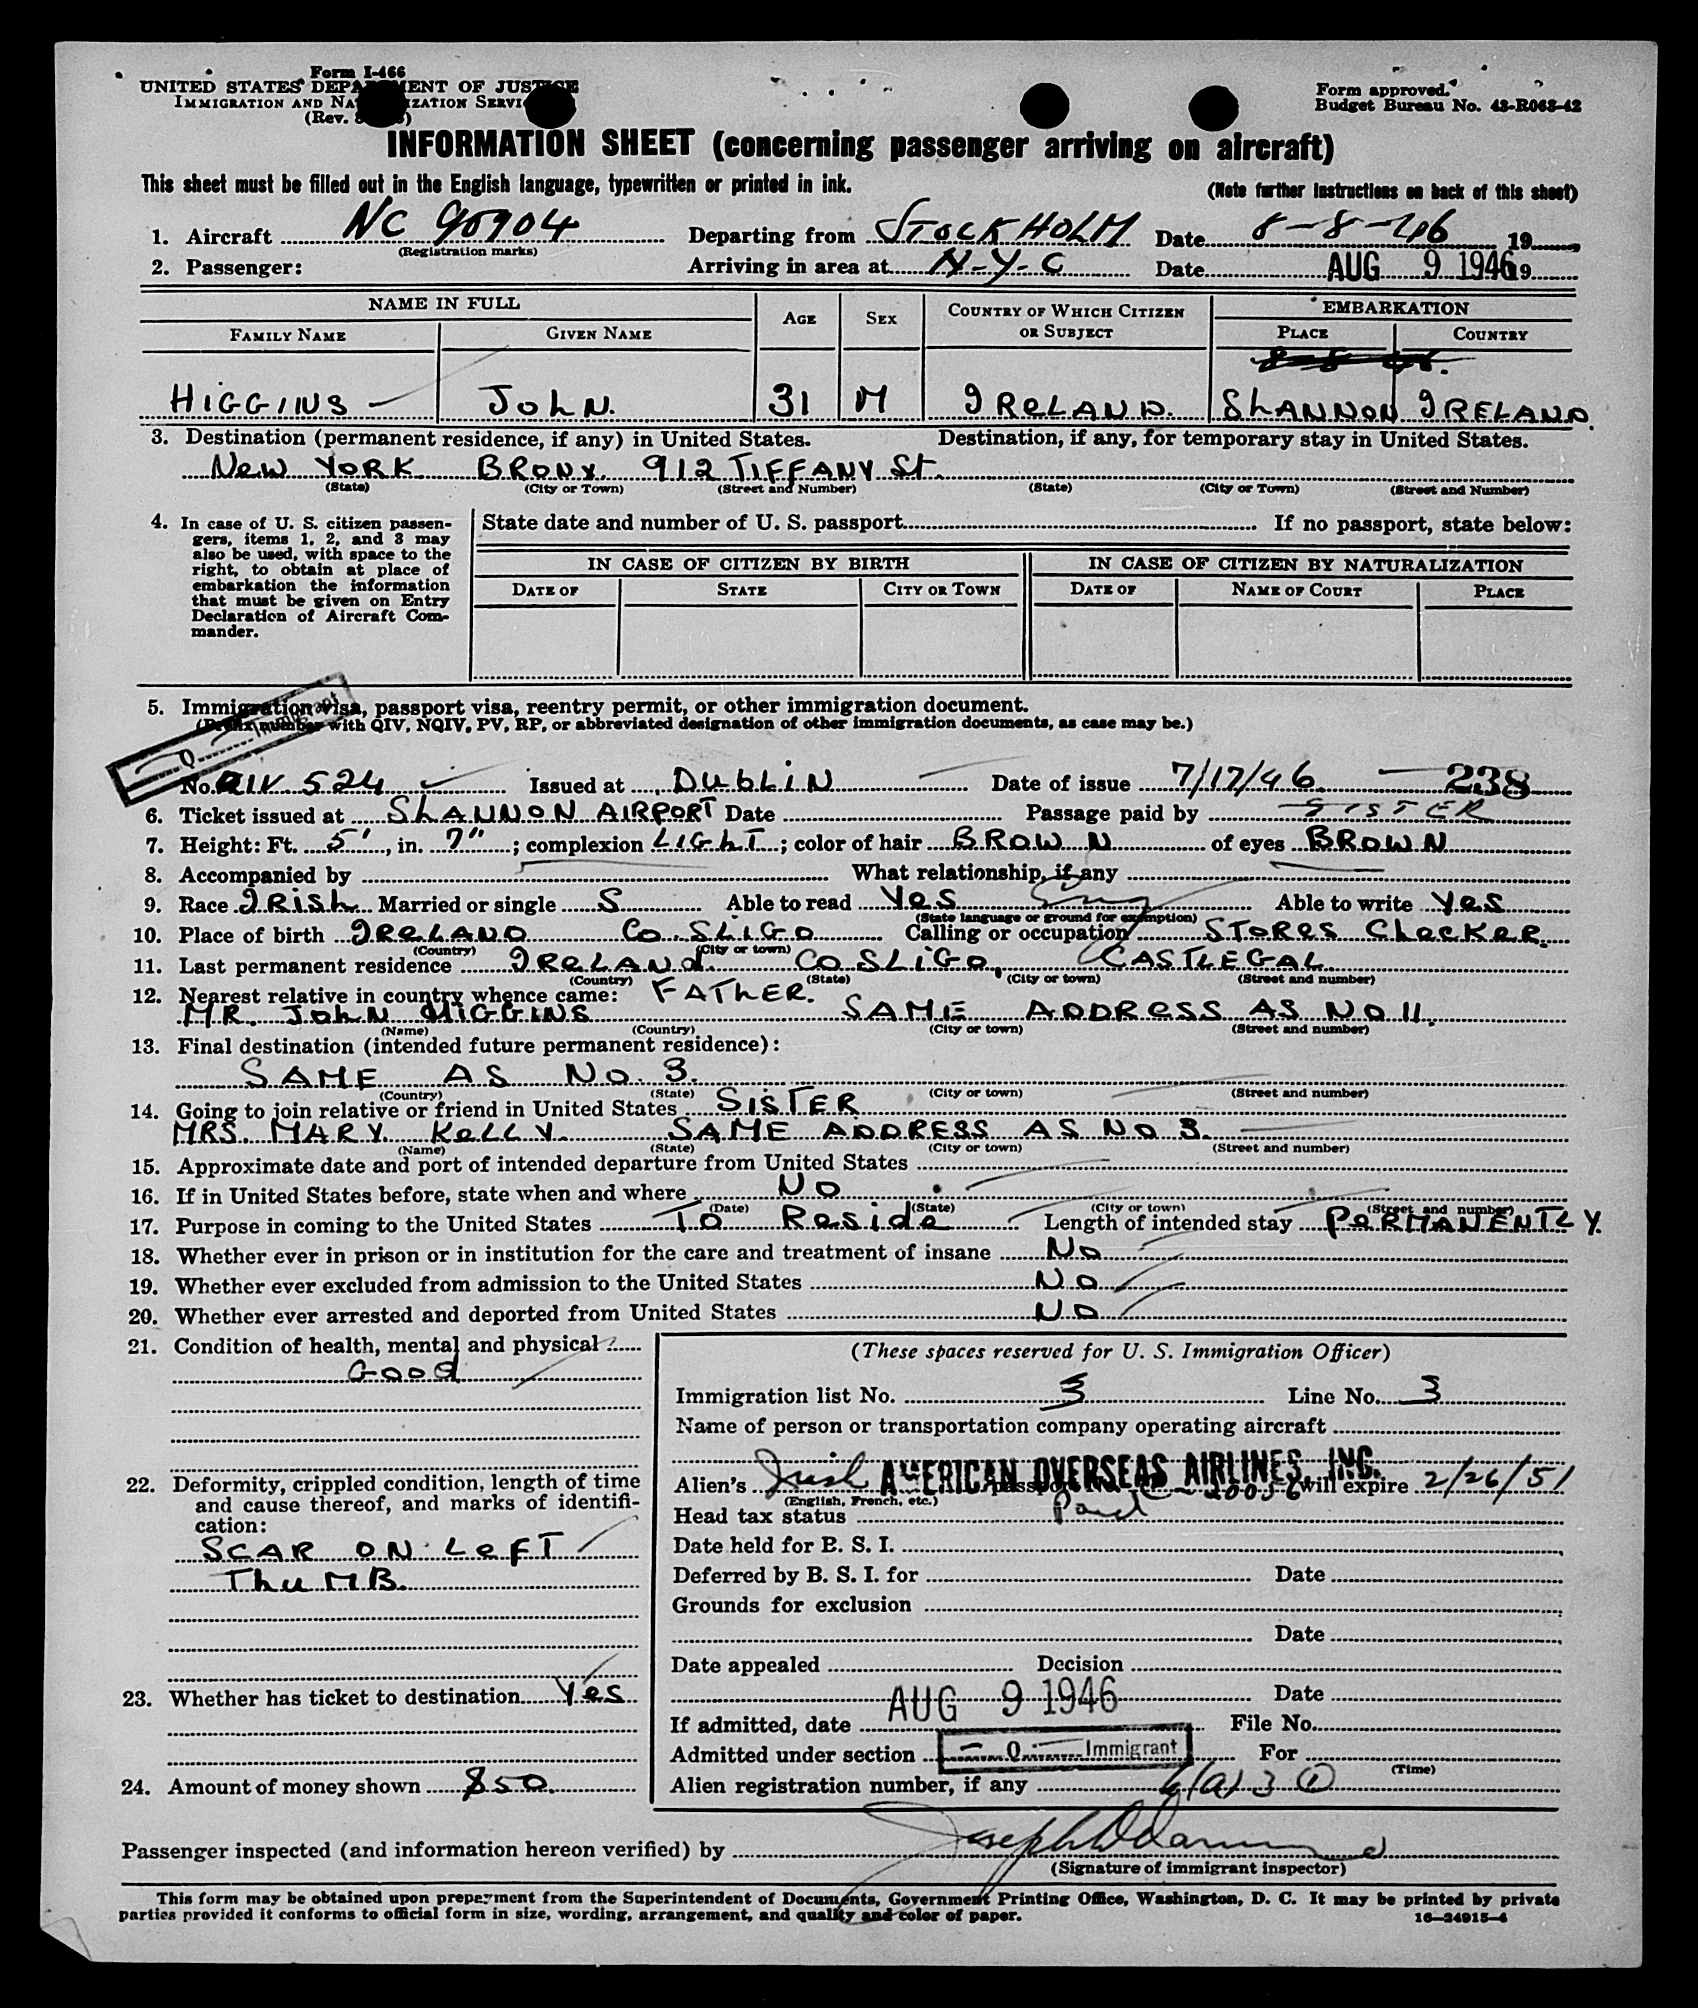 Form I-466
UNITED STATES DEPARTMENT OF JUSTICE
IMMIGRATION AND NATURALIZATION SERVICE
(Rev.
Form approved.
Budget Bureau No. 43-R068-42
INFORMATION SHEET (concerning passenger arriving on aircraft)
This sheet must be filled out in the English language, typewritten or printed in ink.
(Note further instructions on back of this sheet)
1. Aircraft NC 90904 Departing from STOCKHOLM Date 8-8-46 19
(Registration marks)
2. Passenger: Arriving in area at N-Y-C Date AUG 9 1946 19
NAME IN FULL AGE SEX COUNTRY OF WHICH CITIZEN OR SUBJECT EMBARKATION
FAMILY NAME GIVEN NAME PLACE COUNTRY
HIGGINS JOHN. 31 M IRELAND. SHANNON IRELAND.
3. Destination (permanent residence, if any) in United States. Destination, if any, for temporary stay in United States.
NEW YORK BRONX. 912 TIFFANY St.
(State) (City or Town) (Street and Number) (State) (City or Town) (Street and Number)
4. In case of U. S. citizen passen-
gers, items 1, 2, and 3 may
also be used, with space to the
right, to obtain at place of
embarkation the information
that must be given on Entry
Declaration of Aircraft Com-
mander.
State date and number of U. S. passport If no passport, state below:
IN CASE OF CITIZEN BY BIRTH IN CASE OF CITIZEN BY NATURALIZATION
DATE OF STATE CITY OR TOWN DATE OF NAME OF COURT PLACE
5. Immigration visa, passport visa, reentry permit, or other immigration document.
(Prefix number with QIV, NQIV, PV, RP, or abbreviated designation of other immigration documents, as case may be.)
Q Immigrant
No. QIV. 524 Issued at DUBLIN Date of issue 7/17/46. 238
6. Ticket issued at SHANNON AIRPORT Date Passage paid by SISTER
7. Height: Ft. 5', in. 7"; complexion LIGHT; color of hair BROWN of eyes BROWN
8. Accompanied by What relationship, if any
9. Race IRISH Married or single S Able to read YES Eng Able to write YES
(State language or ground for exemption)
10. Place of birth IRELAND CO. SLIGO Calling or occupation STORES CHECKER.
(Country) (City or town)
11. Last permanent residence IRELAND. CO SLIGO, CASTLEGAL
(Country) (State) (City or town) (Street and number)
12. Nearest relative in country whence came: FATHER.
MR. JOHN HIGGINS SAME ADDRESS AS NO 11.
(Name) (Country) (City or town) (Street and number)
13. Final destination (intended future permanent residence):
SAME AS NO. 3.
(Country) (State) (City or town) (Street and number)
14. Going to join relative or friend in United States SISTER
MRS. MARY KELLY. SAME ADDRESS AS NO 3.
(Name) (State) (City or town) (Street and number)
15. Approximate date and port of intended departure from United States
16. If in United States before, state when and where NO
(Date) (State) (City or town) (Street and number)
17. Purpose in coming to the United States TO Reside Length of intended stay PERMANENTLY.
18. Whether ever in prison or in institution for the care and treatment of insane NO
19. Whether ever excluded from admission to the United States NO
20. Whether ever arrested and deported from United States NO
21. Condition of health, mental and physical
Good
22. Deformity, crippled condition, length of time
and cause thereof, and marks of identifi-
cation:
SCAR ON LEFT
THUMB.
23. Whether has ticket to destination Yes
24. Amount of money shown $50.
(These spaces reserved for U. S. Immigration Officer)
Immigration list No. 3 Line No. 3
Name of person or transportation company operating aircraft
AMERICAN OVERSEAS AIRLINES, INC.
Alien's Irish passport No. will expire 2/26/51
(English, French, etc.)
Head tax status Paid
Date held for B. S. I.
Deferred by B. S. I. for Date
Grounds for exclusion
Date
Date appealed Decision
Date
If admitted, date AUG 9 1946 File No.
Admitted under section Q Immigrant For
(Time)
Alien registration number, if any 6(a) 3 ①
Passenger inspected (and information hereon verified) by Joseph
(Signature of immigrant inspector)
This form may be obtained upon prepayment from the Superintendent of Documents, Government Printing Office, Washington, D. C. It may be printed by private
parties provided it conforms to official form in size, wording, arrangement, and quality and color of paper.
16—24915-4